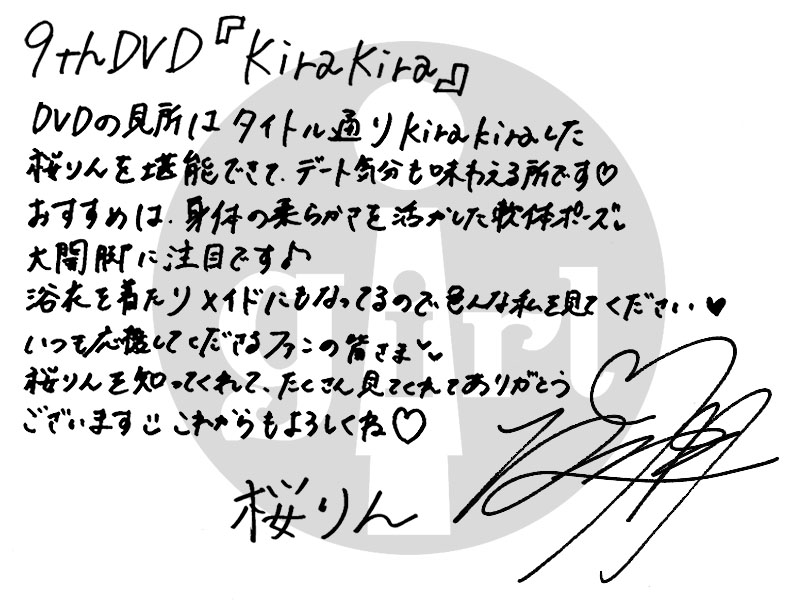 9thDVD『KiraKira』
DVDの見所はタイトル通りkirakiraした
桜りんを堪能できて、デート気分も味わえる所です♡
おすすめは、身体の柔らかさを活かした軟体ポーズ
大開脚に注目です♪
浴衣を着たりメイドにもなってるので、色んな私を見てください♥
いつも応援してくださるファンの皆さま
桜りんを知ってくれて、たくさん見てくれてありがとう
ございます これからもよろしくね♡
桜りん
i
girl